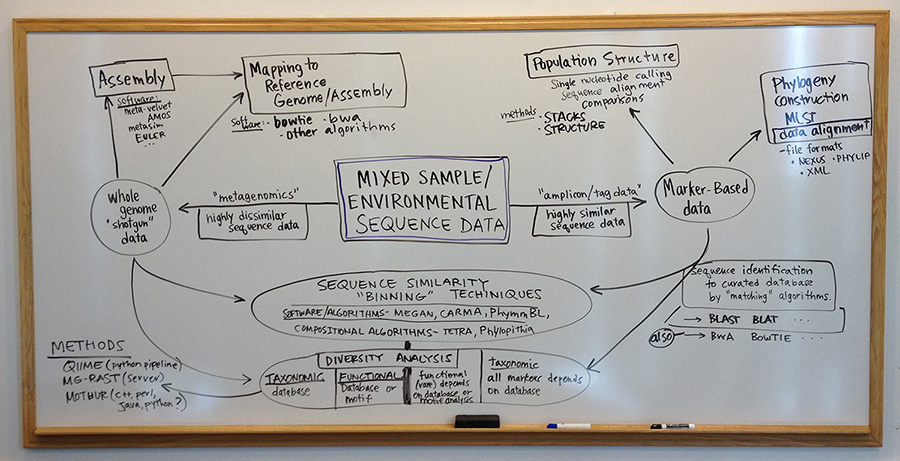 Assembly
software:
meta-velvet
AMOS
metasim
EULER
...
Mapping to
Reference
Genome/Assembly
Software: • bowtie • bwa
• other algorithms
Population Structure
Single nucleotide calling
sequence alignment
comparisons
methods • STACKS
• STRUCTURE
Phylogeny
construction
MLST
data alignment
- file formats
• NEXUS • PHYLIP
• XML
Whole
genome
"shotgun"
data
"metagenomics"
highly dissimilar
sequence data
MIXED SAMPLE/
ENVIRONMENTAL
SEQUENCE DATA
"amplicon/tag data"
highly similar
sequence data
Marker-Based
data
SEQUENCE SIMILARITY
"BINNING" TECHINIQUES
SOFTWARE/ALGORITHMS- MEGAN, CARMA, PhymmBL,
COMPOSITIONAL ALGORITHMS- TETRA, Phylopithia
sequence identification
to curated database
by "matching" algorithms.
BLAST BLAT ...
also
BWA BOWTIE ...
METHODS
QIIME (python pipeline)
MG-RAST (server)
MOTHUR (C++, perl,
java, python?)
DIVERSITY ANALYSIS
TAXONOMIC
database
FUNCTIONAL
Database or
motif
functional
(rare) depends
on database or
motif analysis
taxonomic
all markers depends
on database